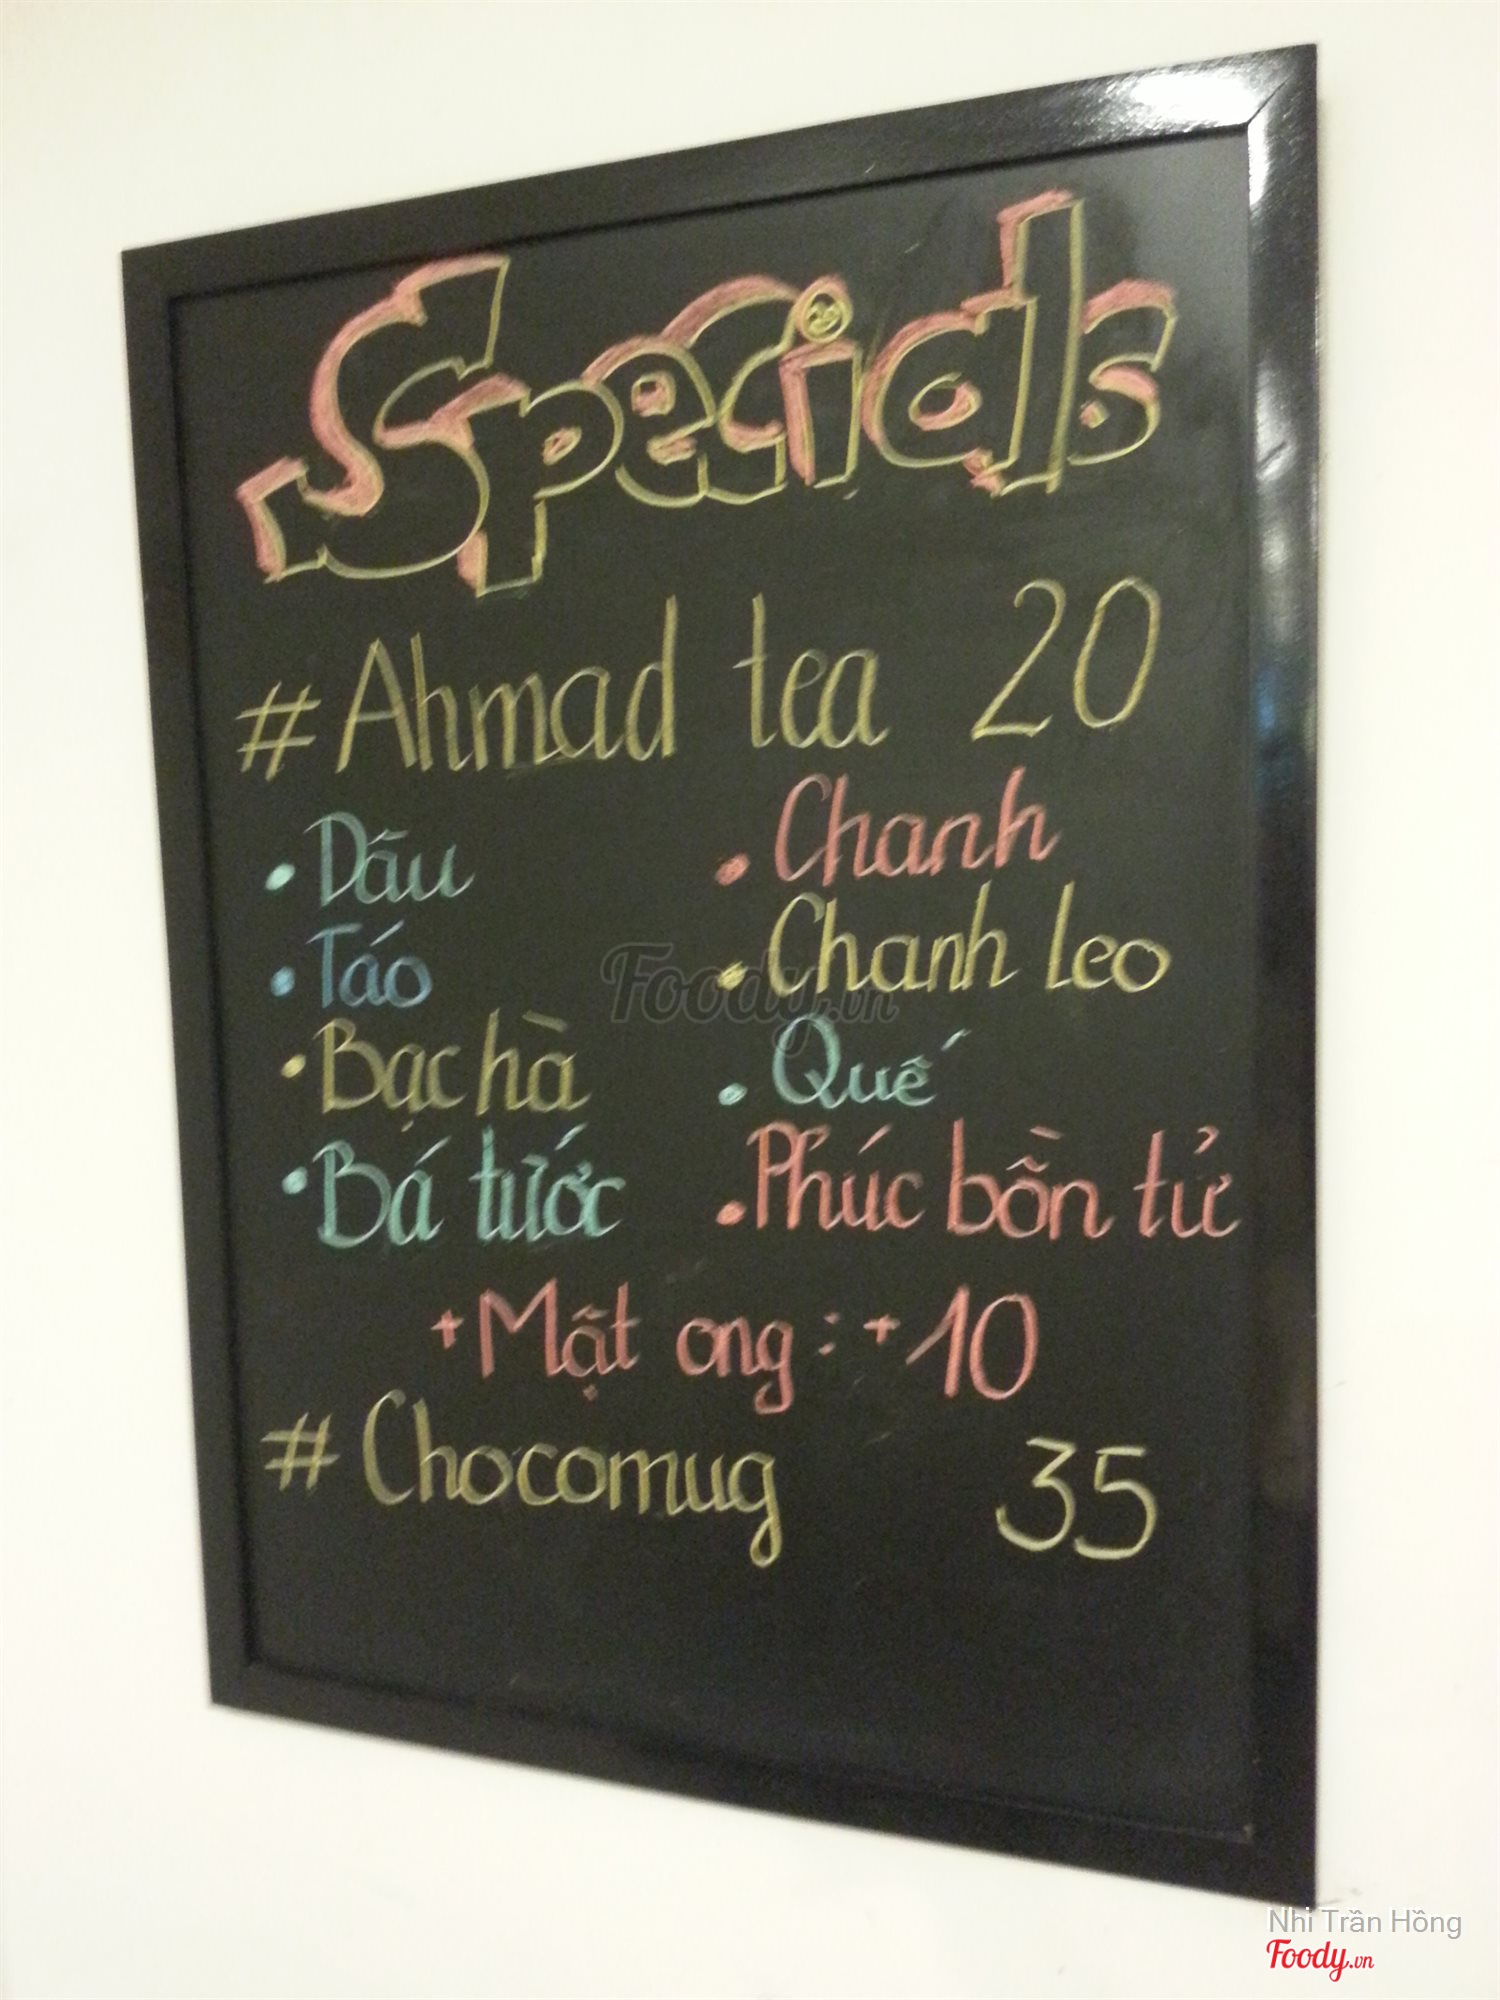 Specials
# Ahmad tea 20
• Dâu
• Chanh
• Táo
• Chanh leo
• Bạc hà
• Quế
• Bá tước
• Phúc bồn tử
+ Mật ong : + 10
# Chocomug 35
Foody.vn
Nhi Trần Hồng
Foody.vn